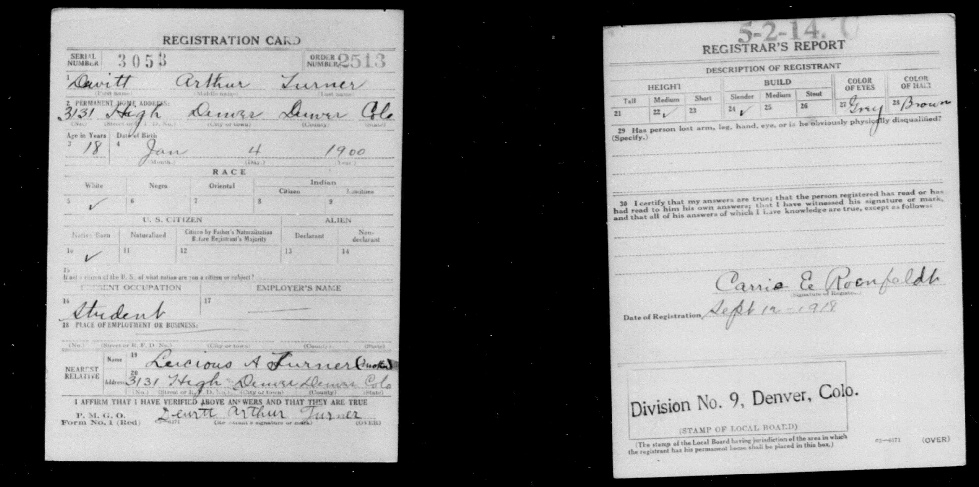 REGISTRATION CARD
SERIAL NUMBER 3053 ORDER NUMBER 2513
1 Dewitt Arthur Turner
(First name) (Middle name) (Last name)
2 PERMANENT HOME ADDRESS:
3131 High Denver Denver Colo
(No.) (Street or R. F. D. No.) (City or town) (County) (State)
Age in Years Date of Birth
3 18 4 Jan 4 1900
(Month.) (Day.) (Year.)
RACE
White Negro Oriental Indian
Citizen
5 ✓ 6 7 8 9
U. S. CITIZEN ALIEN
Native Born Naturalized Citizen by Father's Naturalization Before Registrant's Majority Declarant Non-declarant
10 ✓ 11 12 13 14
15
If not a citizen of the U. S., of what nation are you a citizen or subject?
PRESENT OCCUPATION EMPLOYER'S NAME
16 Student 17
18 PLACE OF EMPLOYMENT OR BUSINESS:
(No.) (Street or R. F. D. No.) (City or town) (County) (State)
NEAREST RELATIVE
Name 19 A Turner
Address 20 3131 High Denver Denver Colo
(No.) (Street or R. F. D. No.) (City or town) (County) (State)
I AFFIRM THAT I HAVE VERIFIED ABOVE ANSWERS AND THAT THEY ARE TRUE
P. M. G. O. Dewitt Arthur Turner
Form No. 1 (Red) (Registrant's signature or mark) (OVER)
5-2-14. C
REGISTRAR'S REPORT
DESCRIPTION OF REGISTRANT
HEIGHT BUILD COLOR OF EYES COLOR OF HAIR
Tall Medium Short Slender Medium Stout
21 22 ✓ 23 24 ✓ 25 26 27 Grey 28 Brown
29 Has person lost arm, leg, hand, eye, or is he obviously physically disqualified?
(Specify.)
30 I certify that my answers are true; that the person registered has read or has
had read to him his own answers; that I have witnessed his signature or mark,
and that all of his answers of which I have knowledge are true, except as follows:
Carrie E Roenfaldt
(Signature of Registrar)
Date of Registration Sept 12 - 1918
Division No. 9, Denver, Colo.
(STAMP OF LOCAL BOARD)
(The stamp of the Local Board having jurisdiction of the area in which
the registrant has his permanent home shall be placed in this box.)
(OVER)